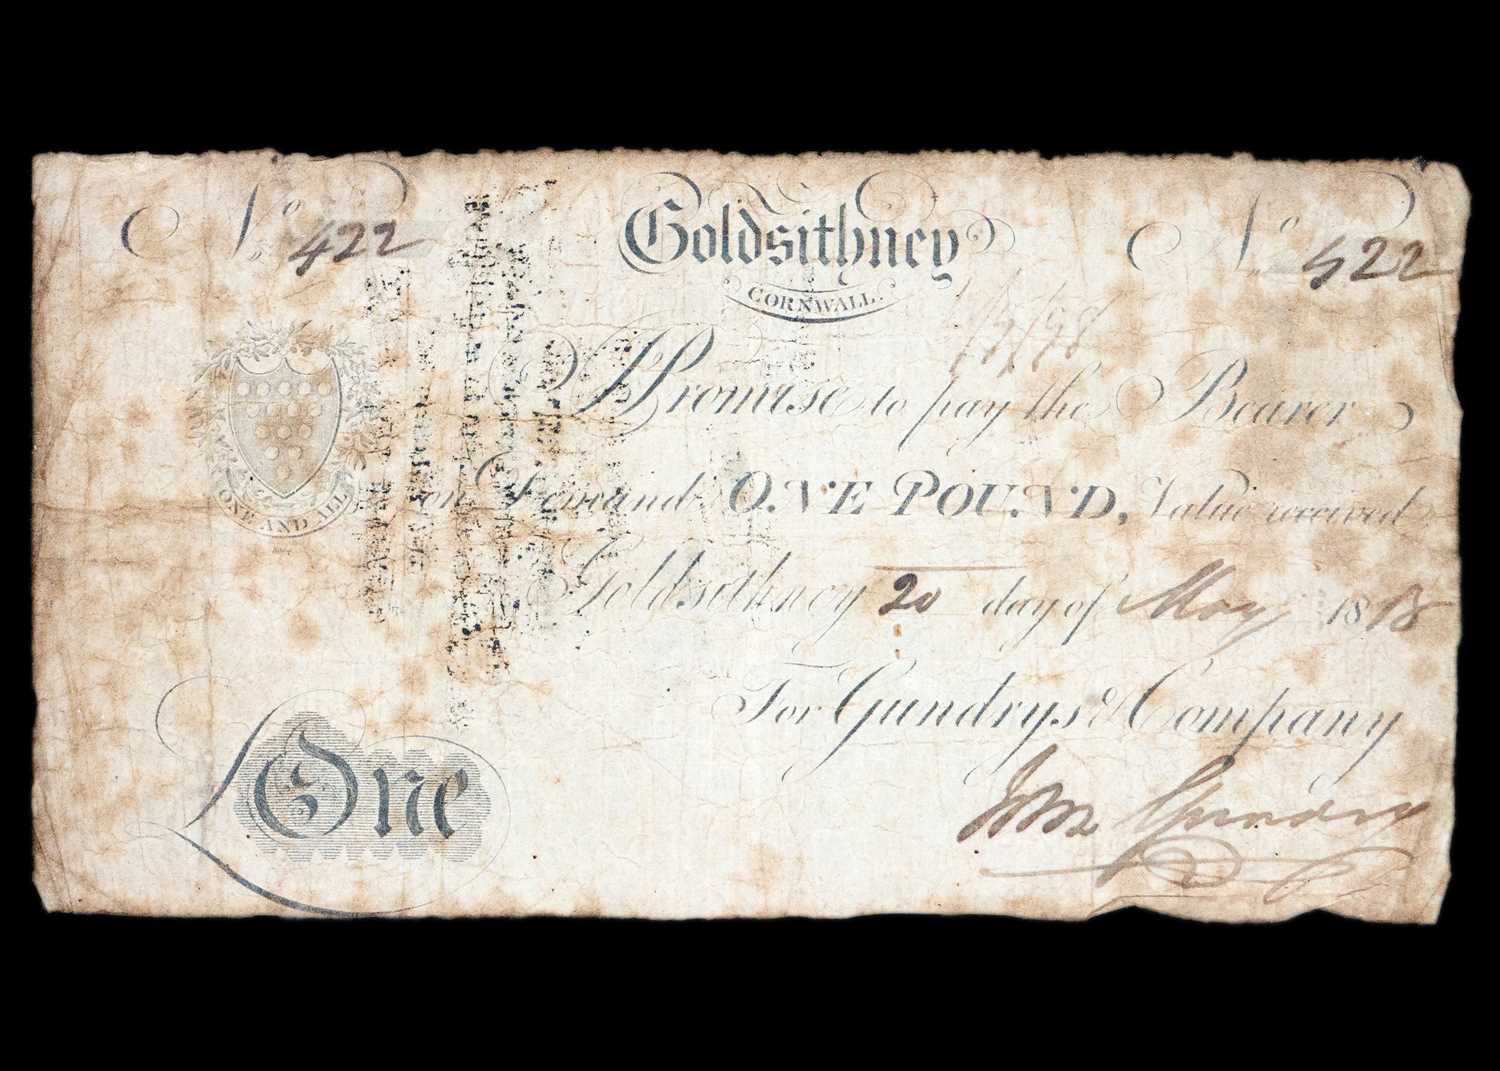 No 422 Goldsithney No 422
CORNWALL.
I Promise to pay the Bearer
on Demand ONE POUND, Value received
Goldsithney 20 day of May 1818
For Gundrys & Company
John Gundry
ONE AND ALL
£ One